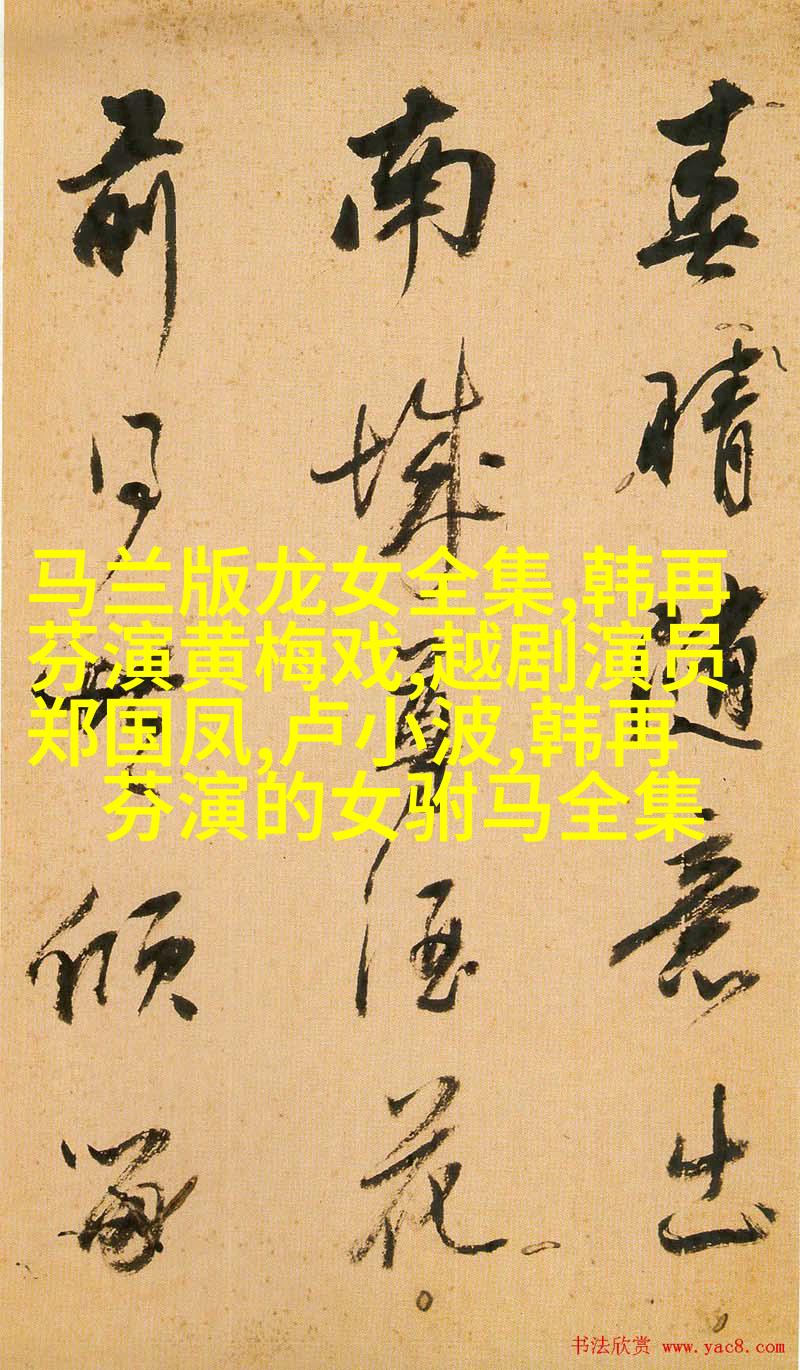 马兰版龙女全集,韩再
芬演黄梅戏,越剧演员
郑国凤,卢小波,韩再
芬演的女驸马全集
春晴意出
南城買酒花
前傾
书法欣赏 www.yac8.com